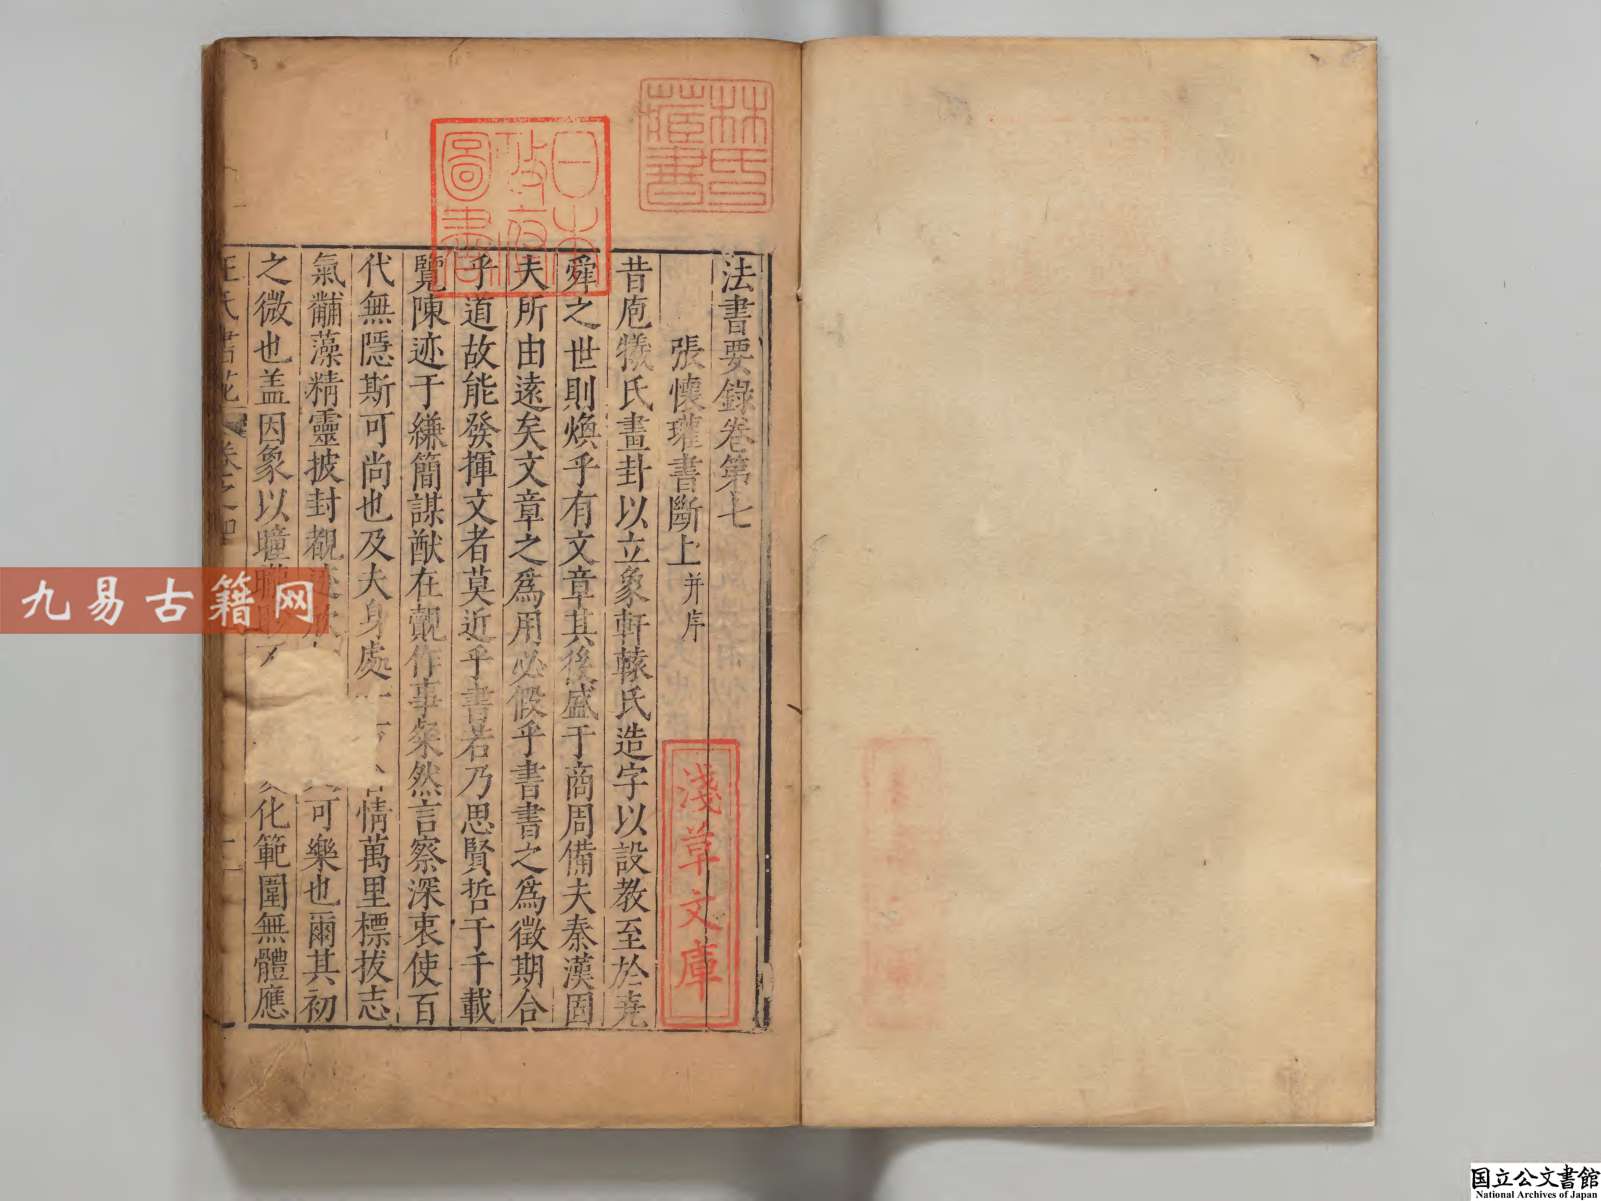 法書要錄卷第七
張懷瓘書斷上并序
昔庖犧氏畫卦以立象軒轅氏造字以設教至於堯
舜之世則煥乎有文章其後盛于商周備夫秦漢固
夫所由遠矣文章之為用必假乎書書之為徵期合
乎道故能發揮文者莫近乎書若乃思賢哲于千載
覽陳迹于縑簡謀猷在覿作事粲然言察深衷使百
代無隱斯可尚也及夫身處
情萬里標拔志
氣黼藻精靈披封覩迹欣
可樂也爾其初
之微也盖因象以瞳
化範圍無體應
林氏藏書
日本政府圖書
淺草文庫
九易古籍网
国立公文書館
National Archives of Japan